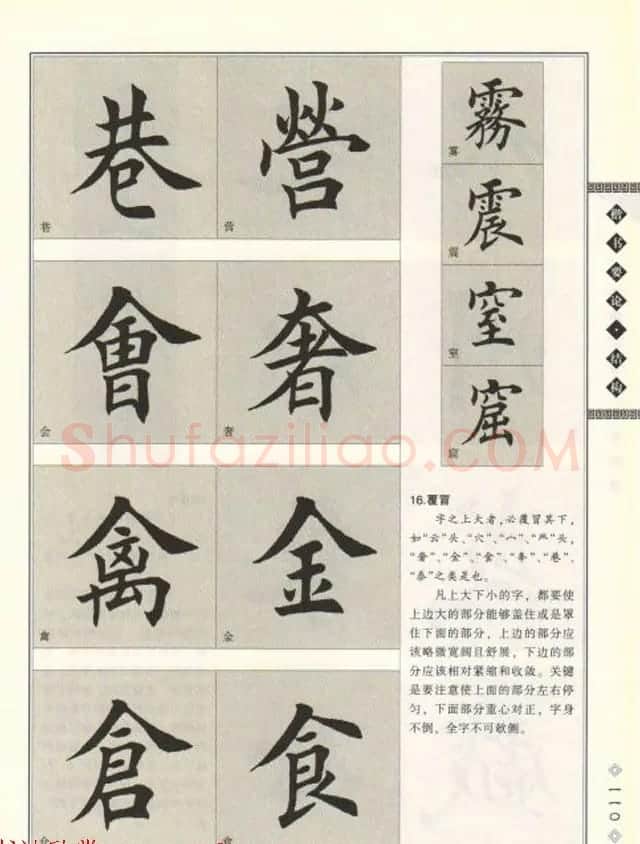 巷
營
巷
营
會
奢
会
奢
禽
金
禽
金
倉
食
霧
雾
震
震
窒
窒
窟
窟
16.覆冒
字之上大者,必覆冒其下,
如“云”头、“穴”、“宀”、“癶”头,
“奢”、“金”、“食”、“奉”、“巷”、
“泰”之类是也。
凡上大下小的字,都要使
上边大的部分能够盖住或是罩
住下面的部分,上边的部分应
该略微宽阔且舒展,下边的部
分应该相对紧缩和收敛。关键
是要注意使上面的部分左右停
匀,下面部分重心对正,字身
不倒,全字不可欹侧。
楷书要论·结构
110
Shufaziliao.COM